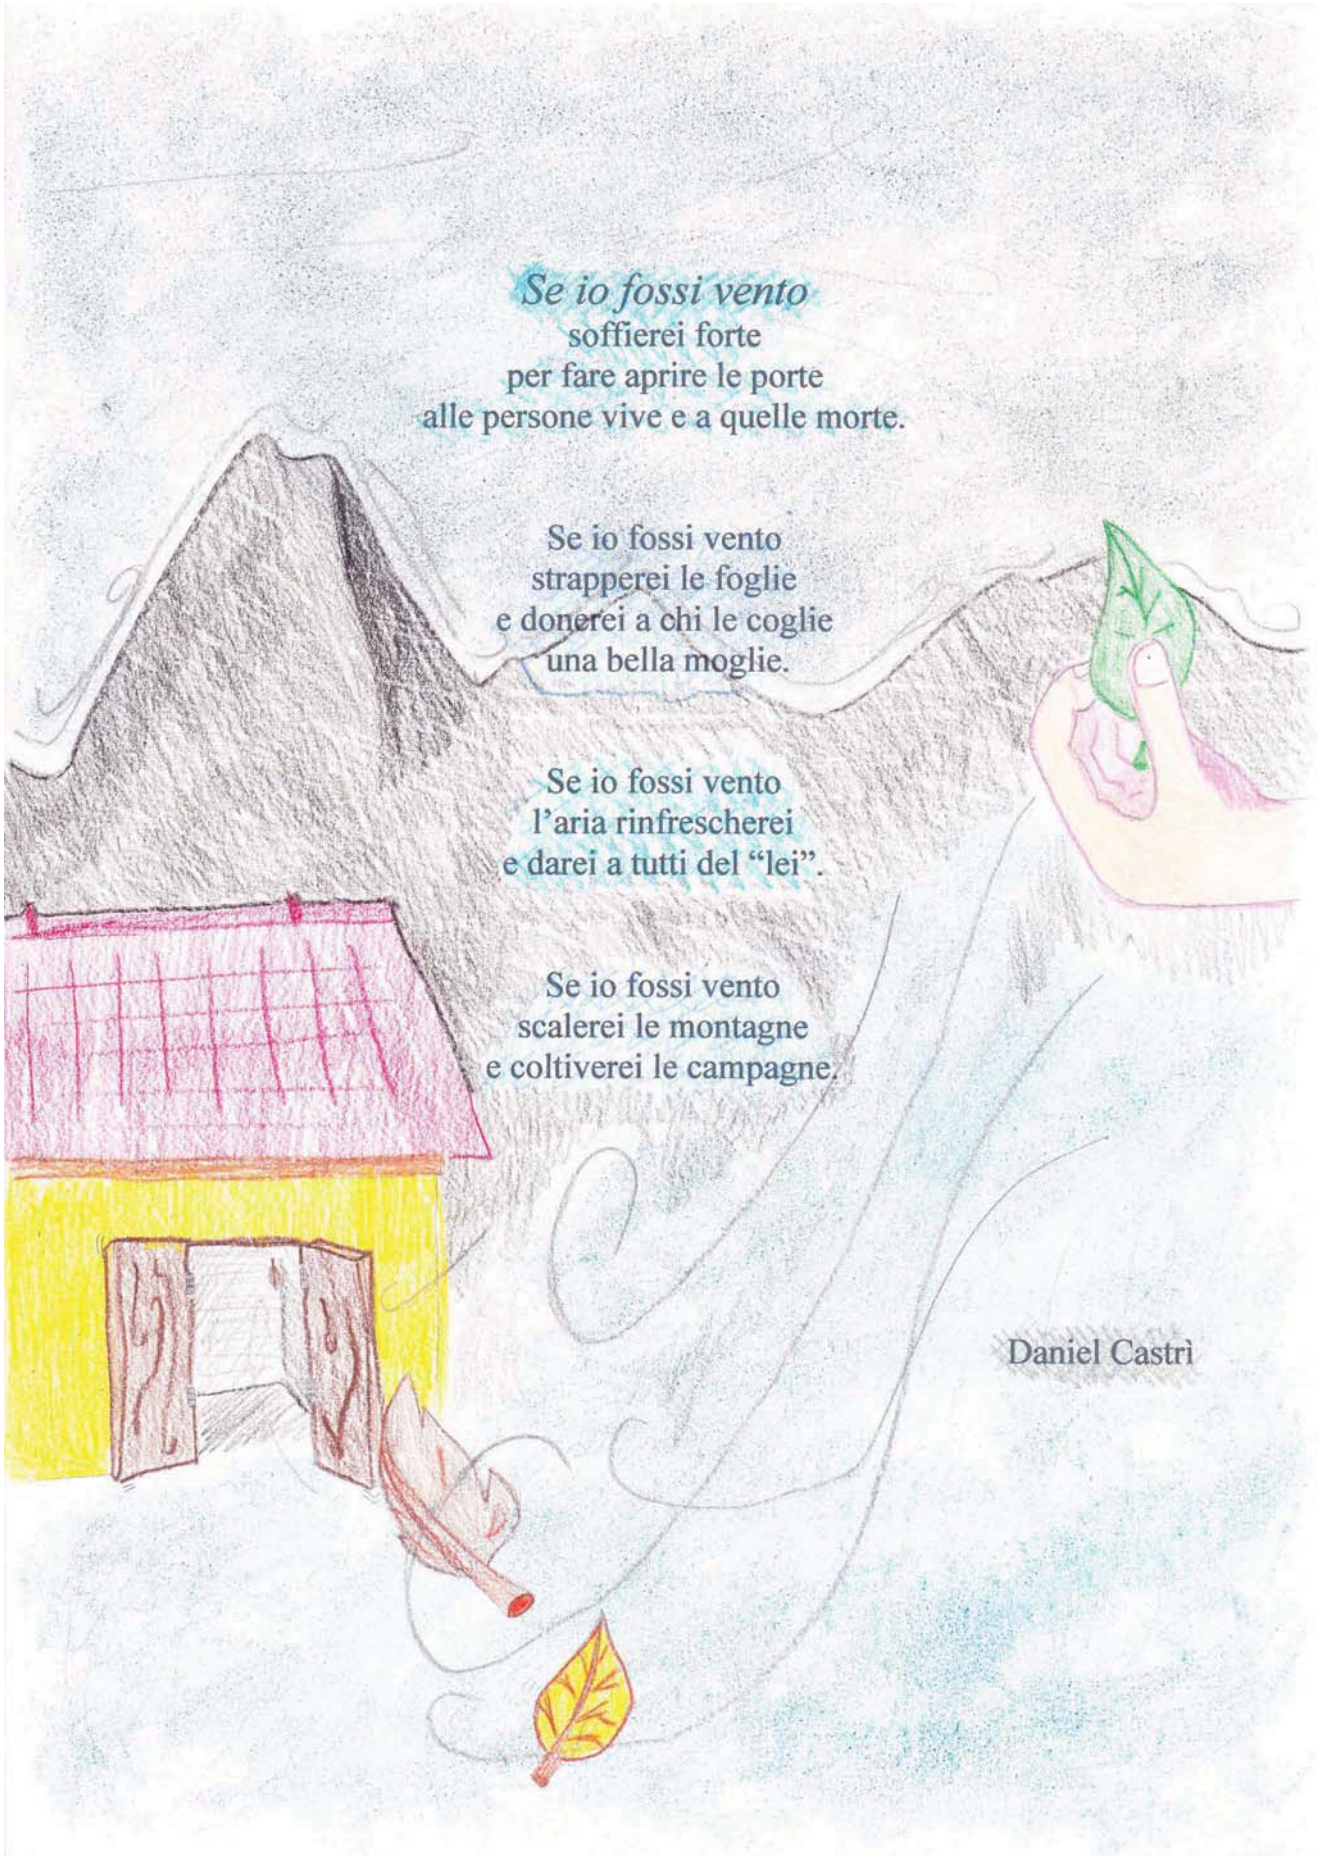 Se io fossi vento
soffierei forte
per fare aprire le porte
alle persone vive e a quelle morte.
Se io fossi vento
strapperei le foglie
e donerei a chi le coglie
una bella moglie.
Se io fossi vento
l’aria rinfrescherei
e darei a tutti del “lei”.
Se io fossi vento
scalerei le montagne
e coltiverei le campagne.
Daniel Castrì